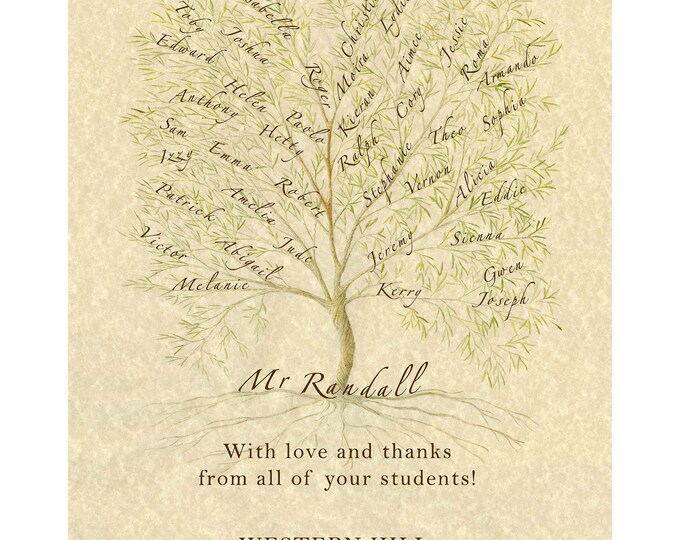 Toby
Isabella
Edward
Joshua
Lydia
Moira
Aimee
Jessie
Roma
Armando
Roger
Kieran
Cory
Helen
Anthony
Paolo
Hetty
Ralph
Theo
Sophia
Sam
Izzy
Emma
Stephanie
Vernon
Robert
Patrick
Amelia
Alicia
Eddie
Victor
Abigail
Jude
Jeremy
Sienna
Melanie
Kerry
Gwen
Joseph
Mr Randall
With love and thanks
from all of your students!
WESTERN HILL